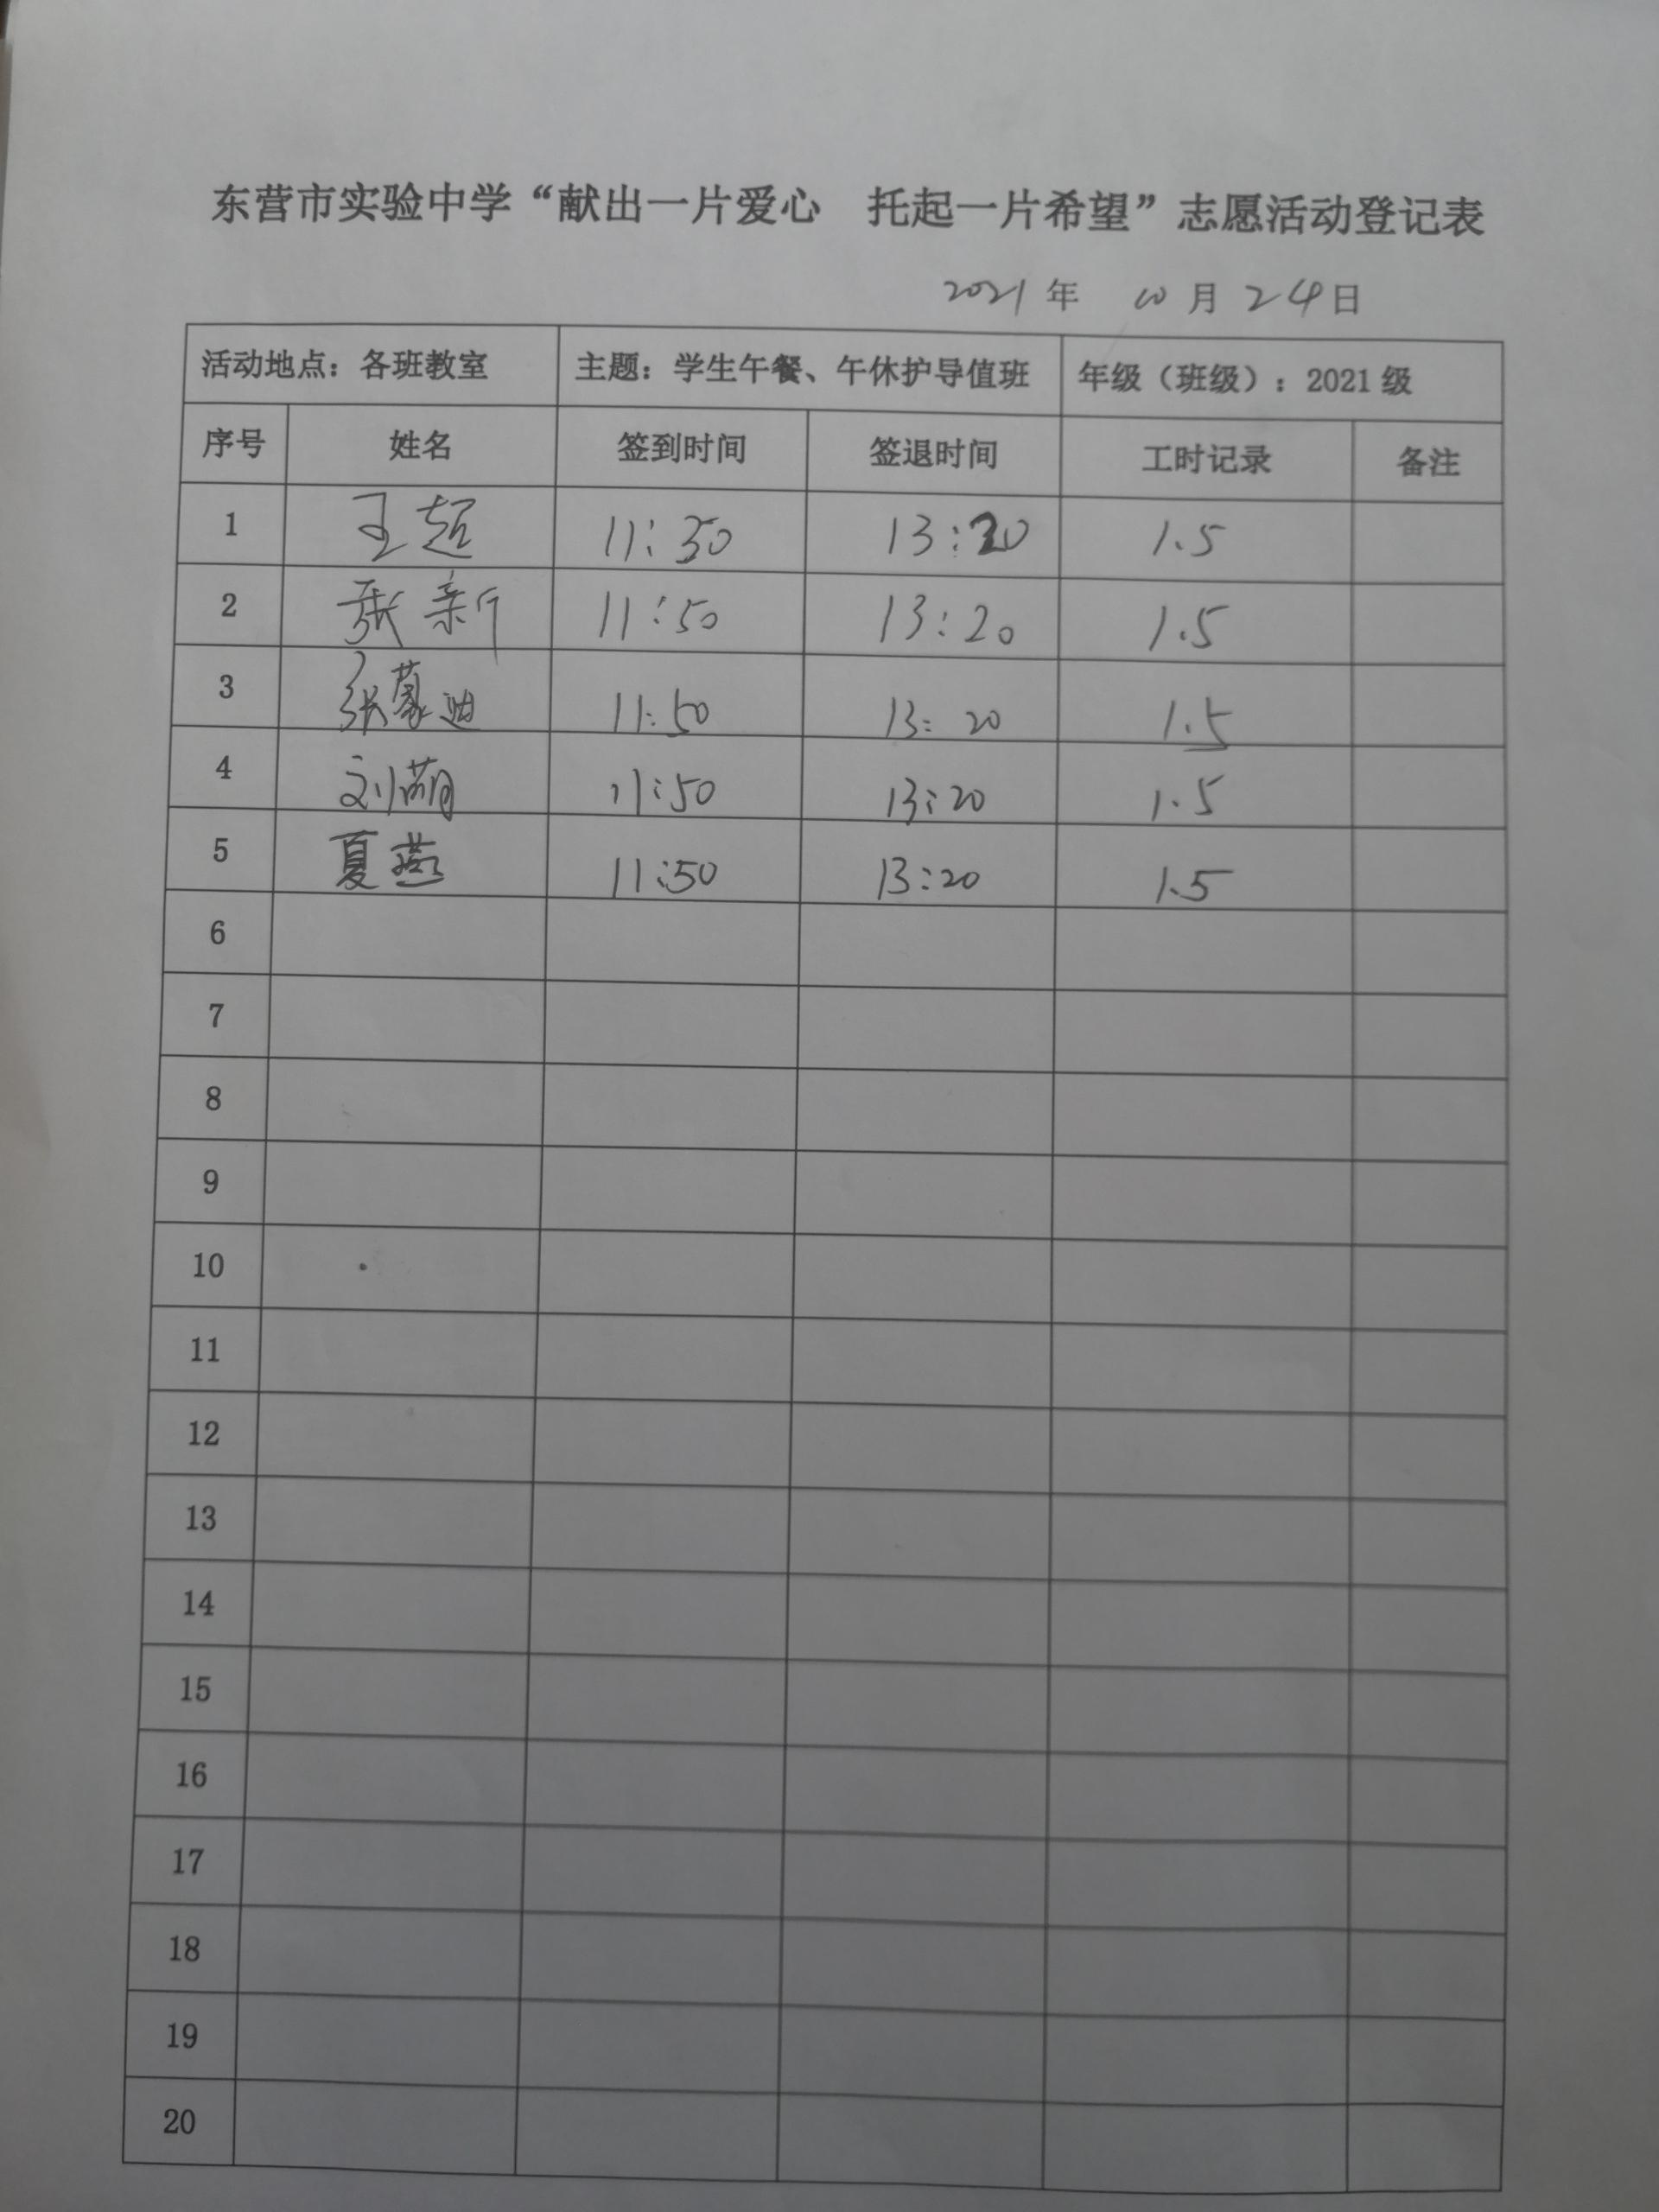 东营市实验中学“献出一片爱心 托起一片希望”志愿活动登记表
2021年 10月24日
活动地点：各班教室 主题：学生午餐、午休护导值班 年级（班级）：2021级
序号 姓名 签到时间 签退时间 工时记录 备注
1 王超 11:30 13:20 1.5
2 张新 11:50 13:20 1.5
3 张蒙迪 11:50 13:20 1.5
4 刘萌 11:50 13:20 1.5
5 夏燕 11:50 13:20 1.5
6
7
8
9
10
11
12
13
14
15
16
17
18
19
20